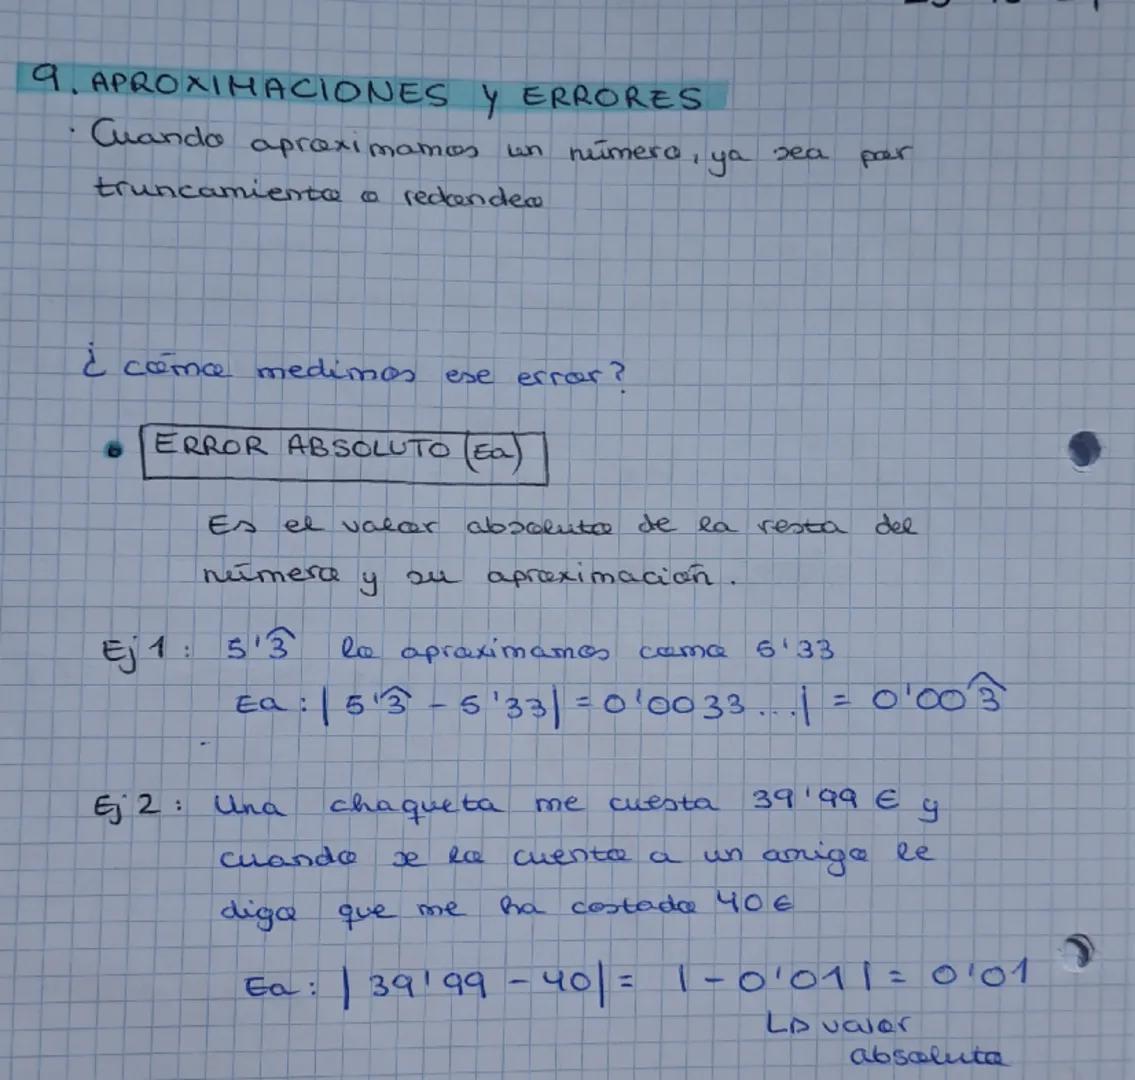 9. APROXIMACIONES y ERRORES
· Cuando aproximamos un número, ya sea por
truncamiento o redondeo
¿ cómo medimos ese error?
• ERROR ABSOLUTO (Ea)
Es el valor absoluto de la resta del
número y su aproximación.
Ej 1: 5'3̂ lo aproximamos como 5'33
Ea: | 5'3̂ - 5'33| = 0'0033...| = 0'003̂
Ej 2: Una chaqueta me cuesta 39'99 € y
cuando se lo cuento a un amigo le
digo que me ha costado 40€
Ea: | 39'99 - 40| = |- 0'01| = 0'01
↳ valor
absoluto